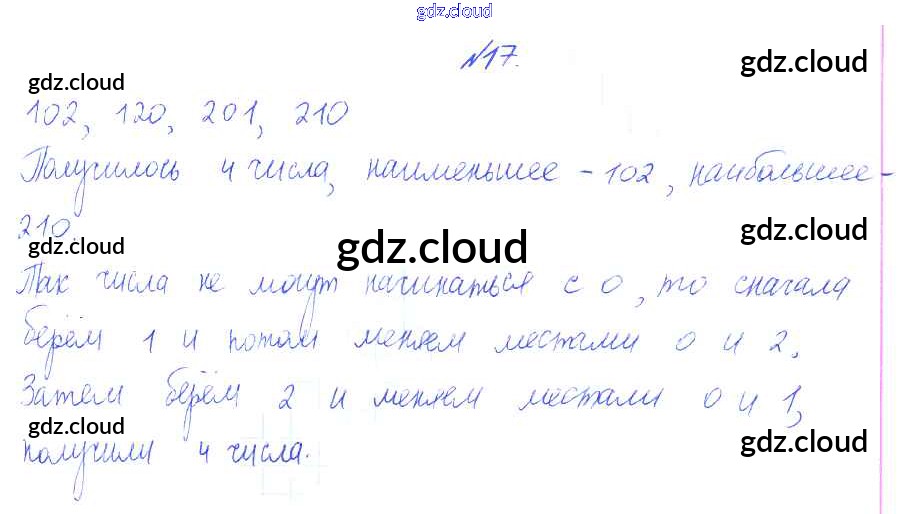 gdz.cloud
№17.
gdz.cloud
gdz.cloud
102, 120, 201, 210
Получилось 4 числа, наименьшее - 102, наибольшее -
210
gdz.cloud
gdz.cloud
gdz.cloud
Так числа не могут начинаться с 0, то сначала
берём 1 и потом меняем местами 0 и 2.
Затем берём 2 и меняем местами 0 и 1,
gdz.cloud
gdz.cloud
получили 4 числа.